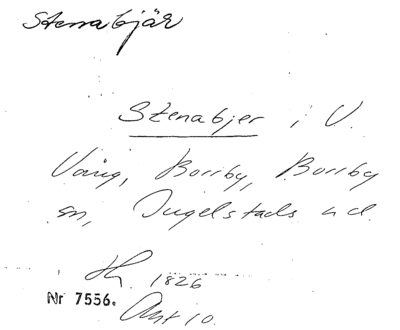 Stenabjär
Stenabjer i V.
Vång, Borrby, Borrby
sn, Ingelstads hd.
1826
Nr 7556.
Akt 10.